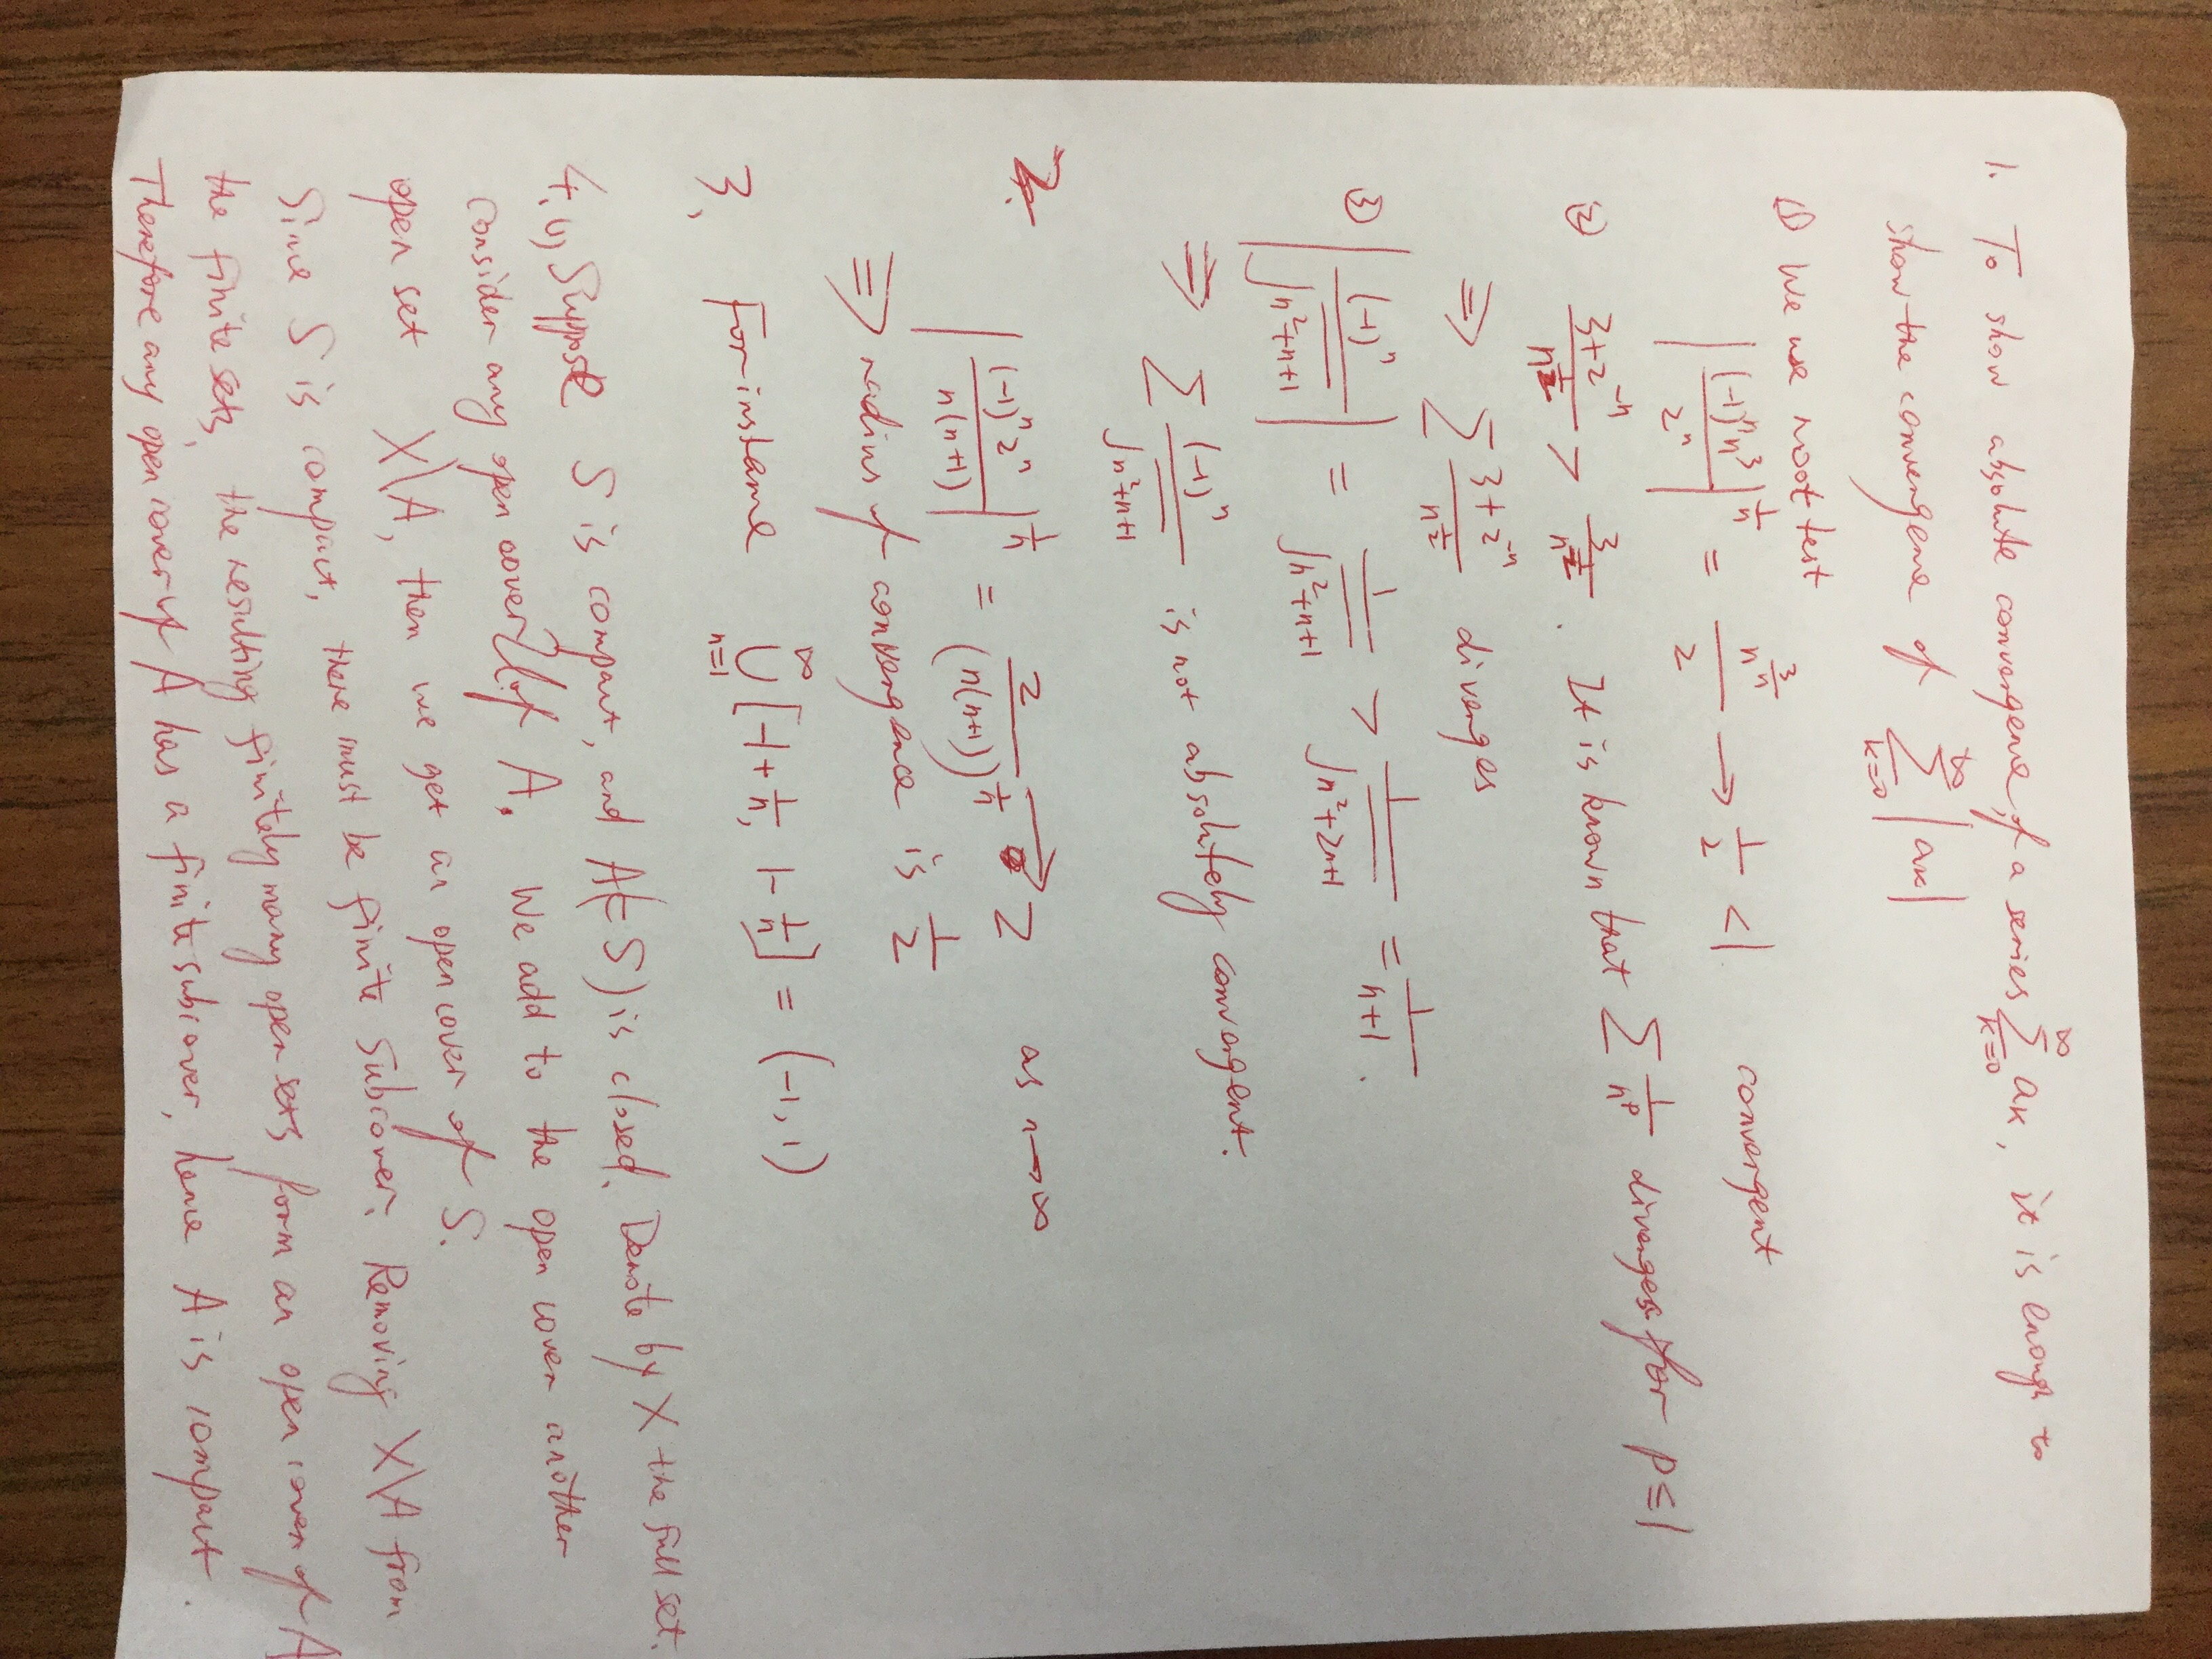 1. To show absolute convergence of a series ∑_{k=0}^{∞} a_k, it is enough to
show the convergence of ∑_{k=0}^{∞} |a_k|
① We use root test
|(-1)^n n^3 / 2^n|^{1/n} = n^{3/n} / 2 → 1/2 < 1 convergent
② (3+2^{-n}) / n^{1/2} > 3 / n^{1/2} . It is known that ∑ 1/n^p diverges for p≤1
⇒ ∑ (3+2^{-n}) / n^{1/2} diverges
③ |(-1)^n / √(n^2+n+1)| = 1 / √(n^2+n+1) > 1 / √(n^2+2n+1) = 1 / (n+1) .
⇒ ∑ (-1)^n / √(n^2+n+1) is not absolutely convergent.
2. |(-1)^n 2^n / n(n+1)|^{1/n} = 2 / (n(n+1))^{1/n} → 2 as n→∞
⇒ radius of convergence is 1/2
3. For instance ∪_{n=1}^{∞} [-1+1/n, 1-1/n] = (-1, 1)
4. (1) Suppose S is compact, and A(⊆S) is closed. Denote by X the full set.
Consider any open cover of A. We add to the open cover another
open set X\A, then we get an open cover of S.
Since S is compact, there must be finite subcover. Removing X\A from
the finite sets, the resulting finitely many open sets form an open cover of A
Therefore any open cover of A has a finite subcover, hence A is compact.